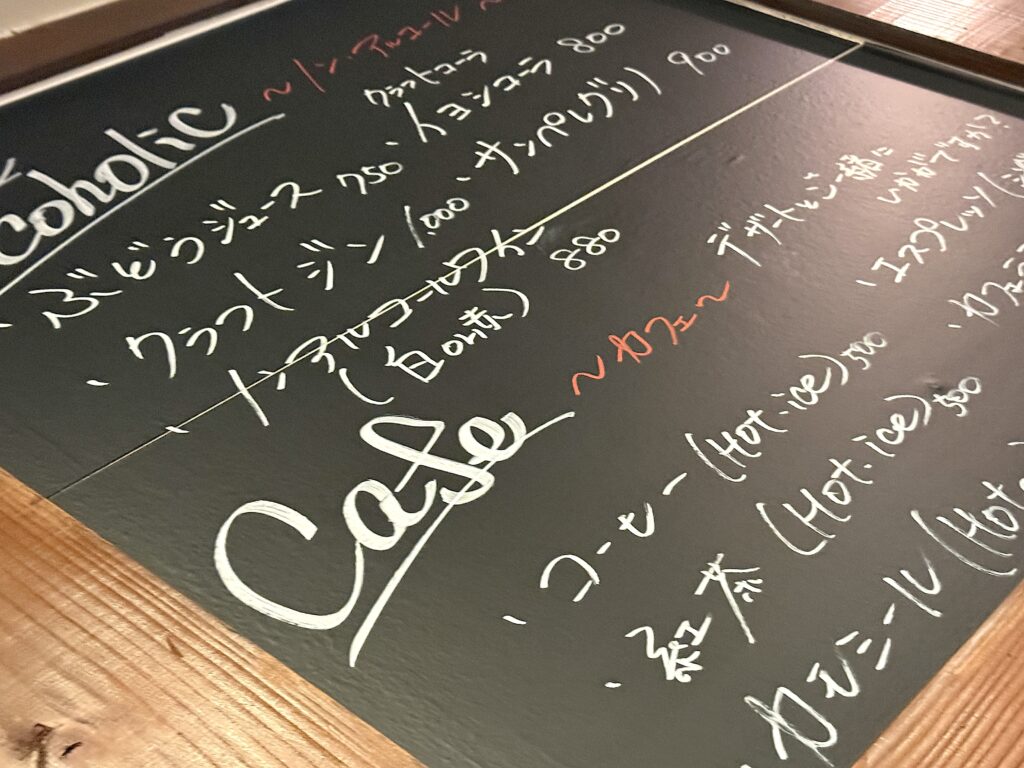 coholic
～ノン・アルコール～
・ぶどうジュース 750
クラフトコーラ
・イヨシコーラ 800
・クラフトジン 1,000
・サンペレグリノ 900
・ノンアルコールワイン 880
(白or赤)
Cafe
～カフェ～
デザートとご一緒に
いかがですか?
・コーヒー (Hot・ice) 500
・紅茶 (Hot・ice) 500
・カモミール (Hot
・エスプレッソ (
・カフェラ